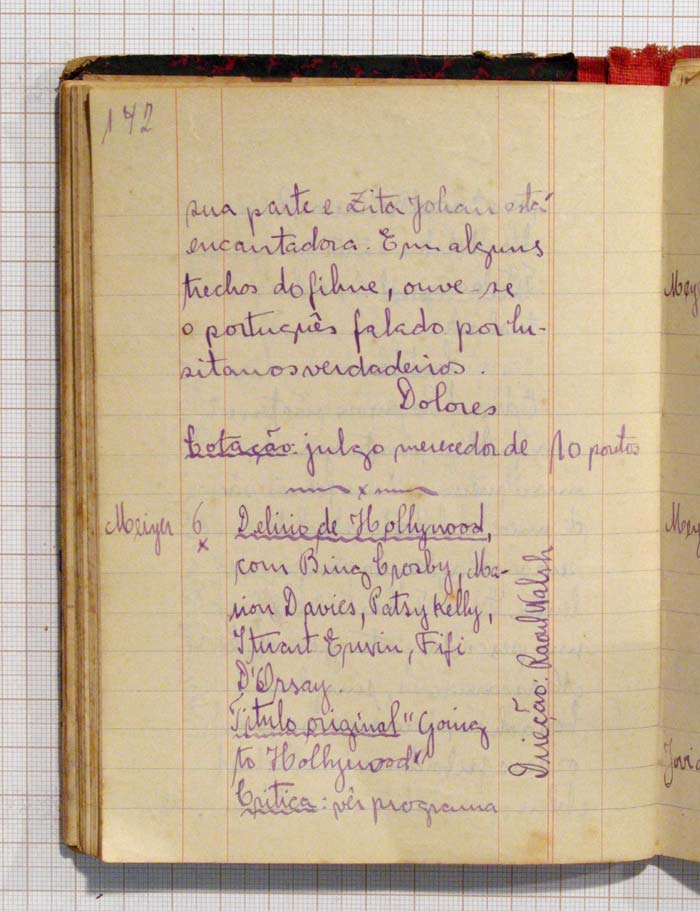 172
sua parte e Zita Johan está
encantadora. Em alguns
trechos do filme, ouve-se
o português falado por lu-
sitanos verdadeiros.
Dolores
Cotação: julgo merecedor de 10 pontos
x
Meiyer 6 Delirio de Hollywood,
x
com Bing Crosby, Ma-
rion Davies, Patsy Kelly,
Stuart Erwin, Fifi
D'Orsay.
Titulo original "Going
to Hollywood"
Critica: vêr programa
Direção: Raoul Walsh
Mey
Mey
Jovi